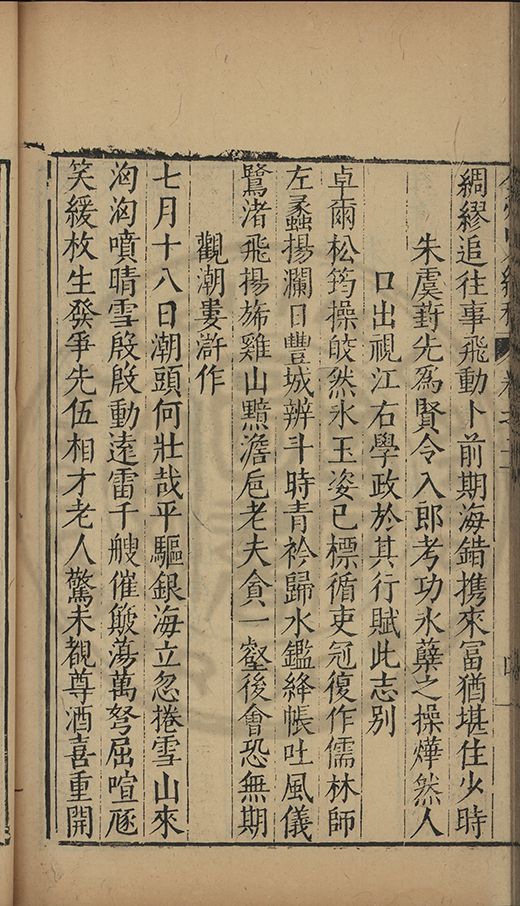 綢繆追往事飛動卜前期海錯携來冨猶堪住少時
朱虞葑先爲賢令入郎考功氷蘖之操燁然人
口出視江右學政於其行賦此志别
卓爾松筠操皎然氷玉姿已標循吏冠復作儒林師
左蠡揚瀾日豐城辨斗時青衿歸水鑑絳帳吐風儀
鷺渚飛揚斾雞山黯澹巵老夫貪一壑後會恐無期
觀潮婁滸作
七月十八日潮頭何壯哉平驅銀海立忽捲雪山來
洶洶噴晴雪殷殷動遠雷千艘催簸蕩萬弩屈喧豗
笑緩枚生發爭先伍相才老人驚未覩尊酒喜重開